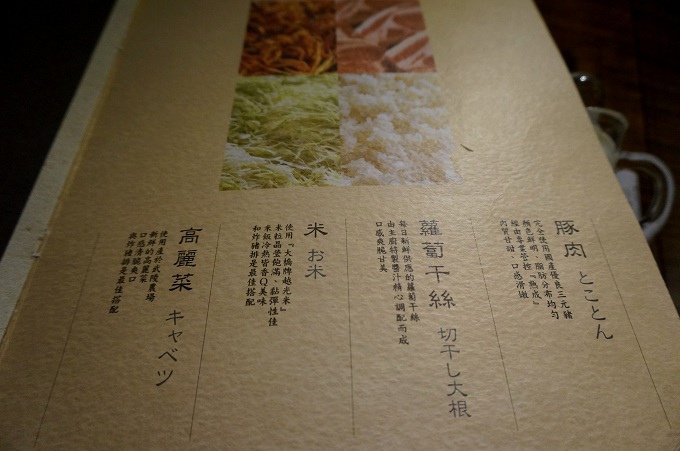 豚肉 とことん
完全使用國產優良三元豬
顏色鮮明、脂肪分布均勻
經由專業管控『熟成』
肉質甘甜、口感滑嫩
蘿蔔干絲 切干し大根
每日新鮮供應的蘿蔔干絲
由主廚特製醬汁精心調配而成
口感爽脆甘美
米 お米
使用『大橋牌越光米』
米粒晶瑩飽滿、黏彈性佳
米飯冷熱皆香Q美味
和炸豬排是最佳搭配
高麗菜 キャベツ
使用產於武陵農場
新鮮的高麗菜
口感清脆爽口
與炸豬是最佳搭配